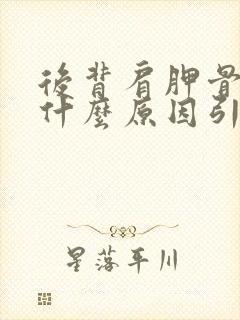 後背肩胛骨
什麼原因引
星落平川